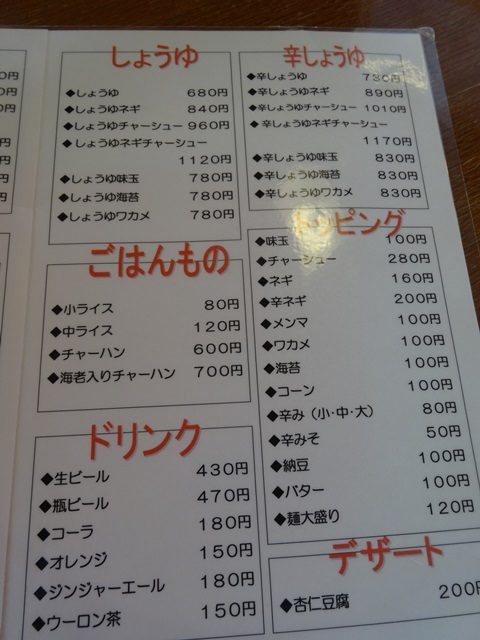 しょうゆ
◆しょうゆ 680円
◆しょうゆネギ 840円
◆しょうゆチャーシュー 960円
◆しょうゆネギチャーシュー
1120円
◆しょうゆ味玉 780円
◆しょうゆ海苔 780円
◆しょうゆワカメ 780円
ごはんもの
◆小ライス 80円
◆中ライス 120円
◆チャーハン 600円
◆海老入りチャーハン 700円
ドリンク
◆生ビール 430円
◆瓶ビール 470円
◆コーラ 180円
◆オレンジ 150円
◆ジンジャーエール 180円
◆ウーロン茶 150円
辛しょうゆ
◆辛しょうゆ 730円
◆辛しょうゆネギ 890円
◆辛しょうゆチャーシュー 1010円
◆辛しょうゆネギチャーシュー
1170円
◆辛しょうゆ味玉 830円
◆辛しょうゆ海苔 830円
◆辛しょうゆワカメ 830円
トッピング
◆味玉 100円
◆チャーシュー 280円
◆ネギ 160円
◆辛ネギ 200円
◆メンマ 100円
◆ワカメ 100円
◆海苔 100円
◆コーン 100円
◆辛み（小・中・大） 80円
◆辛みそ 50円
◆納豆 100円
◆バター 100円
◆麺大盛り 120円
デザート
◆杏仁豆腐 200円